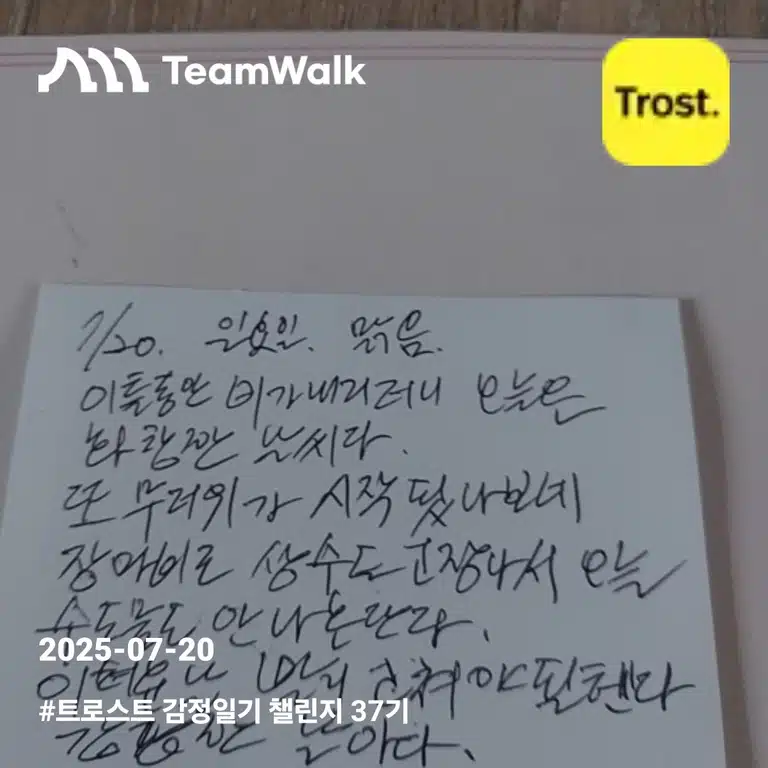 TeamWalk
Trost.
7/20. 일요일. 맑음.
이틀동안 비가내리더니 오늘은
화창한 날씨다.
또 무더위가 시작 됬나보네
장마비로 상수도 고장나서 오늘
수도물도 안나온단다.
2025-07-20
빨리 고쳐야 될텐다
#트로스트 감정일기 챌린지 37기